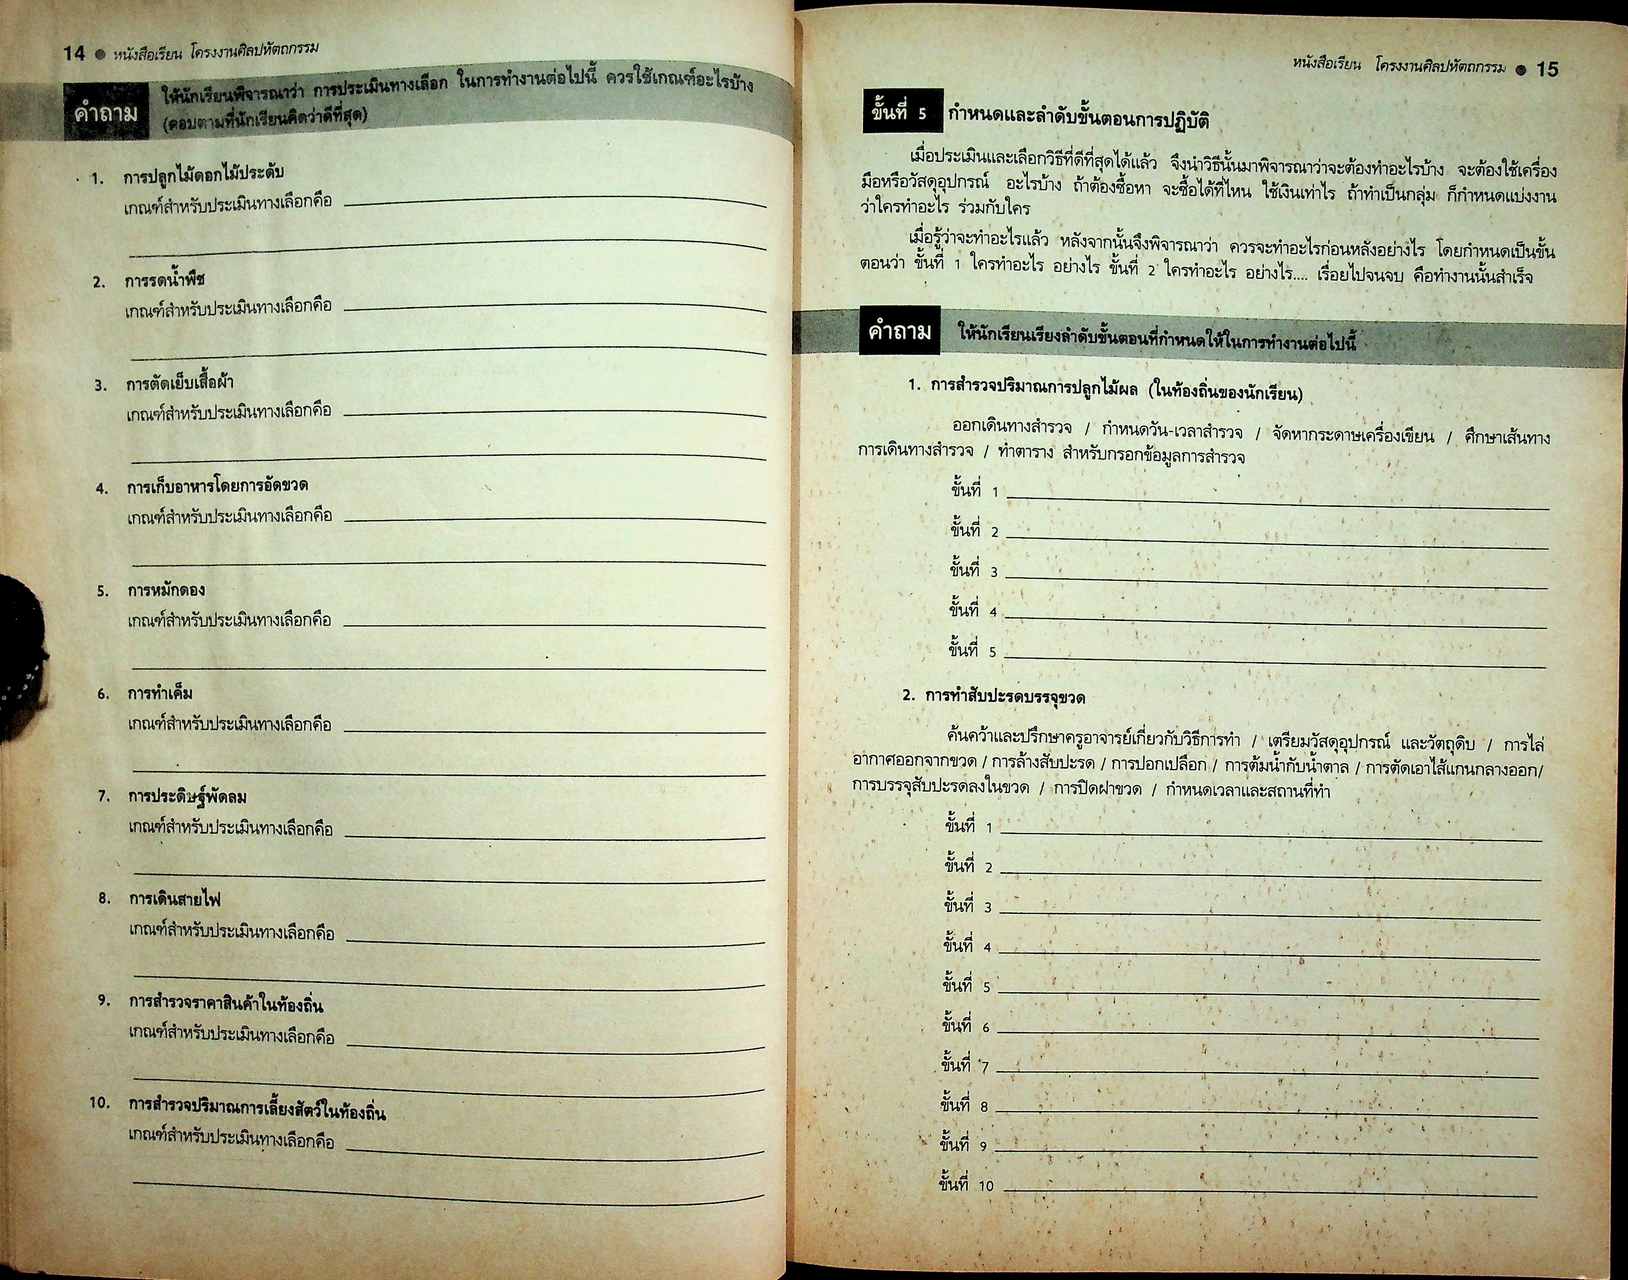 14 ● หนังสือเรียน โครงงานศิลปหัตถกรรม
คำถาม
ให้นักเรียนพิจารณาว่า การประเมินทางเลือก ในการทำงานต่อไปนี้ ควรใช้เกณฑ์อะไรบ้าง
(ตอบตามที่นักเรียนคิดว่าดีที่สุด)
1. การปลูกไม้ดอกไม้ประดับ
เกณฑ์สำหรับประเมินทางเลือกคือ
2. การรดน้ำพืช
เกณฑ์สำหรับประเมินทางเลือกคือ
3. การตัดเย็บเสื้อผ้า
เกณฑ์สำหรับประเมินทางเลือกคือ
4. การเก็บอาหารโดยการอัดขวด
เกณฑ์สำหรับประเมินทางเลือกคือ
5. การหมักดอง
เกณฑ์สำหรับประเมินทางเลือกคือ
6. การทำเค็ม
เกณฑ์สำหรับประเมินทางเลือกคือ
7. การประดิษฐ์พัดลม
เกณฑ์สำหรับประเมินทางเลือกคือ
8. การเดินสายไฟ
เกณฑ์สำหรับประเมินทางเลือกคือ
9. การสำรวจราคาสินค้าในท้องถิ่น
เกณฑ์สำหรับประเมินทางเลือกคือ
10. การสำรวจปริมาณการเลี้ยงสัตว์ในท้องถิ่น
เกณฑ์สำหรับประเมินทางเลือกคือ
หนังสือเรียน โครงงานศิลปหัตถกรรม ● 15
ขั้นที่ 5 กำหนดและลำดับขั้นตอนการปฏิบัติ
เมื่อประเมินและเลือกวิธีที่ดีที่สุดได้แล้ว จึงนำวิธีนั้นมาพิจารณาว่าจะต้องทำอะไรบ้าง จะต้องใช้เครื่อง
มือหรือวัสดุอุปกรณ์ อะไรบ้าง ถ้าต้องซื้อหา จะซื้อได้ที่ไหน ใช้เงินเท่าไร ถ้าทำเป็นกลุ่ม ก็กำหนดแบ่งงาน
ว่าใครทำอะไร ร่วมกับใคร
เมื่อรู้ว่าจะทำอะไรแล้ว หลังจากนั้นจึงพิจารณาว่า ควรจะทำอะไรก่อนหลังอย่างไร โดยกำหนดเป็นขั้น
ตอนว่า ขั้นที่ 1 ใครทำอะไร อย่างไร ขั้นที่ 2 ใครทำอะไร อย่างไร.... เรื่อยไปจนจบ คือทำงานนั้นสำเร็จ
คำถาม ให้นักเรียนเรียงลำดับขั้นตอนที่กำหนดให้ในการทำงานต่อไปนี้
1. การสำรวจปริมาณการปลูกไม้ผล (ในท้องถิ่นของนักเรียน)
ออกเดินทางสำรวจ / กำหนดวัน-เวลาสำรวจ / จัดหากระดาษเครื่องเขียน / ศึกษาเส้นทาง
การเดินทางสำรวจ / ทำตาราง สำหรับกรอกข้อมูลการสำรวจ
ขั้นที่ 1
ขั้นที่ 2
ขั้นที่ 3
ขั้นที่ 4
ขั้นที่ 5
2. การทำสับปะรดบรรจุขวด
ค้นคว้าและปรึกษาครูอาจารย์เกี่ยวกับวิธีการทำ / เตรียมวัสดุอุปกรณ์ และวัตถุดิบ / การไล่
อากาศออกจากขวด / การล้างสับปะรด / การปอกเปลือก / การต้มน้ำกับน้ำตาล / การตัดเอาไส้แกนกลางออก/
การบรรจุสับปะรดลงในขวด / การปิดฝาขวด / กำหนดเวลาและสถานที่ทำ
ขั้นที่ 1
ขั้นที่ 2
ขั้นที่ 3
ขั้นที่ 4
ขั้นที่ 5
ขั้นที่ 6
ขั้นที่ 7
ขั้นที่ 8
ขั้นที่ 9
ขั้นที่ 10